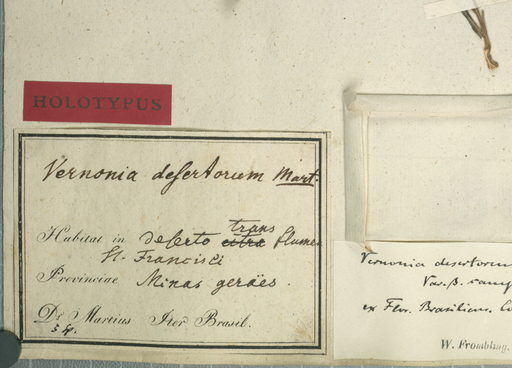 HOLOTYPUS
Vernonia desertorum Mart.
trans
Habitat in deserto citra flumen
St. Francisci
Provinciae Minas geraës.
Dr. Martius Iter Brasil.
Vernonia desertorum
Var. β.
ex Flor. Brasilien.
W. Frombling.